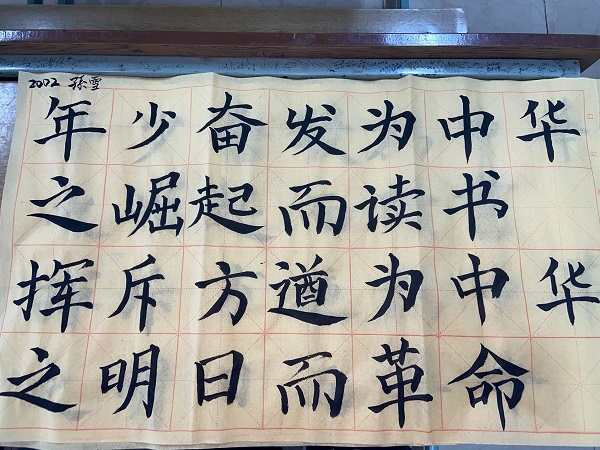 2002 孫雪
年少奋发为中华
之崛起而读书
挥斥方遒为中华
之明日而革命